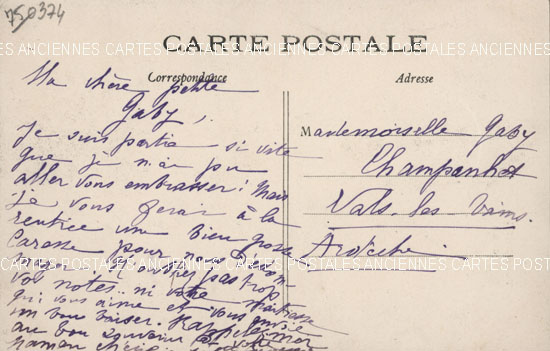 750374
CARTE POSTALE
ANCIENNES CARTES POSTALES ANCIENNES CARTES POSTALES ANCIENNES
Correspondance
Adresse
Ma chère petite
Gaby,
Je suis partie si vite
que je n'ai pu
aller vous embrasser! Mais
je vous ferai à la
rentrée une bien grosse
Caresse pour
pas trop
vos notes.. ni votre
qui vous aime et vous envoie
un bon baiser. Rappelez moi
au bon souvenir de votre
maman
Mademoiselle Gaby
Champanhet
Vals-les-Bains.
Ardèche.
CARTES POSTALES ANCIENNES CARTES POSTALES